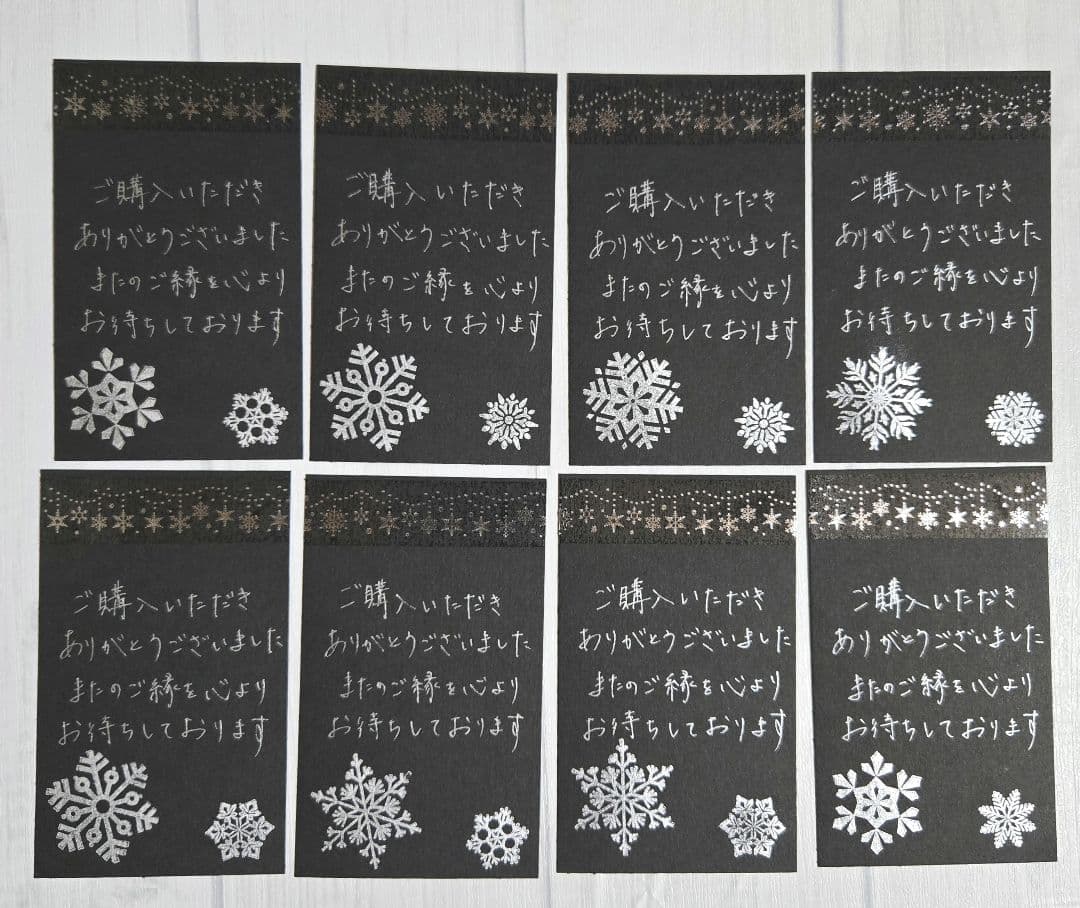 ご購入いただき
ありがとうございました
またのご縁を心より
お待ちしております
ご購入いただき
ありがとうございました
またのご縁を心より
お待ちしております
ご購入いただき
ありがとうございました
またのご縁を心より
お待ちしております
ご購入いただき
ありがとうございました
またのご縁を心より
お待ちしております
ご購入いただき
ありがとうございました
またのご縁を心より
お待ちしております
ご購入いただき
ありがとうございました
またのご縁を心より
お待ちしております
ご購入いただき
ありがとうございました
またのご縁を心より
お待ちしております
ご購入いただき
ありがとうございました
またのご縁を心より
お待ちしております